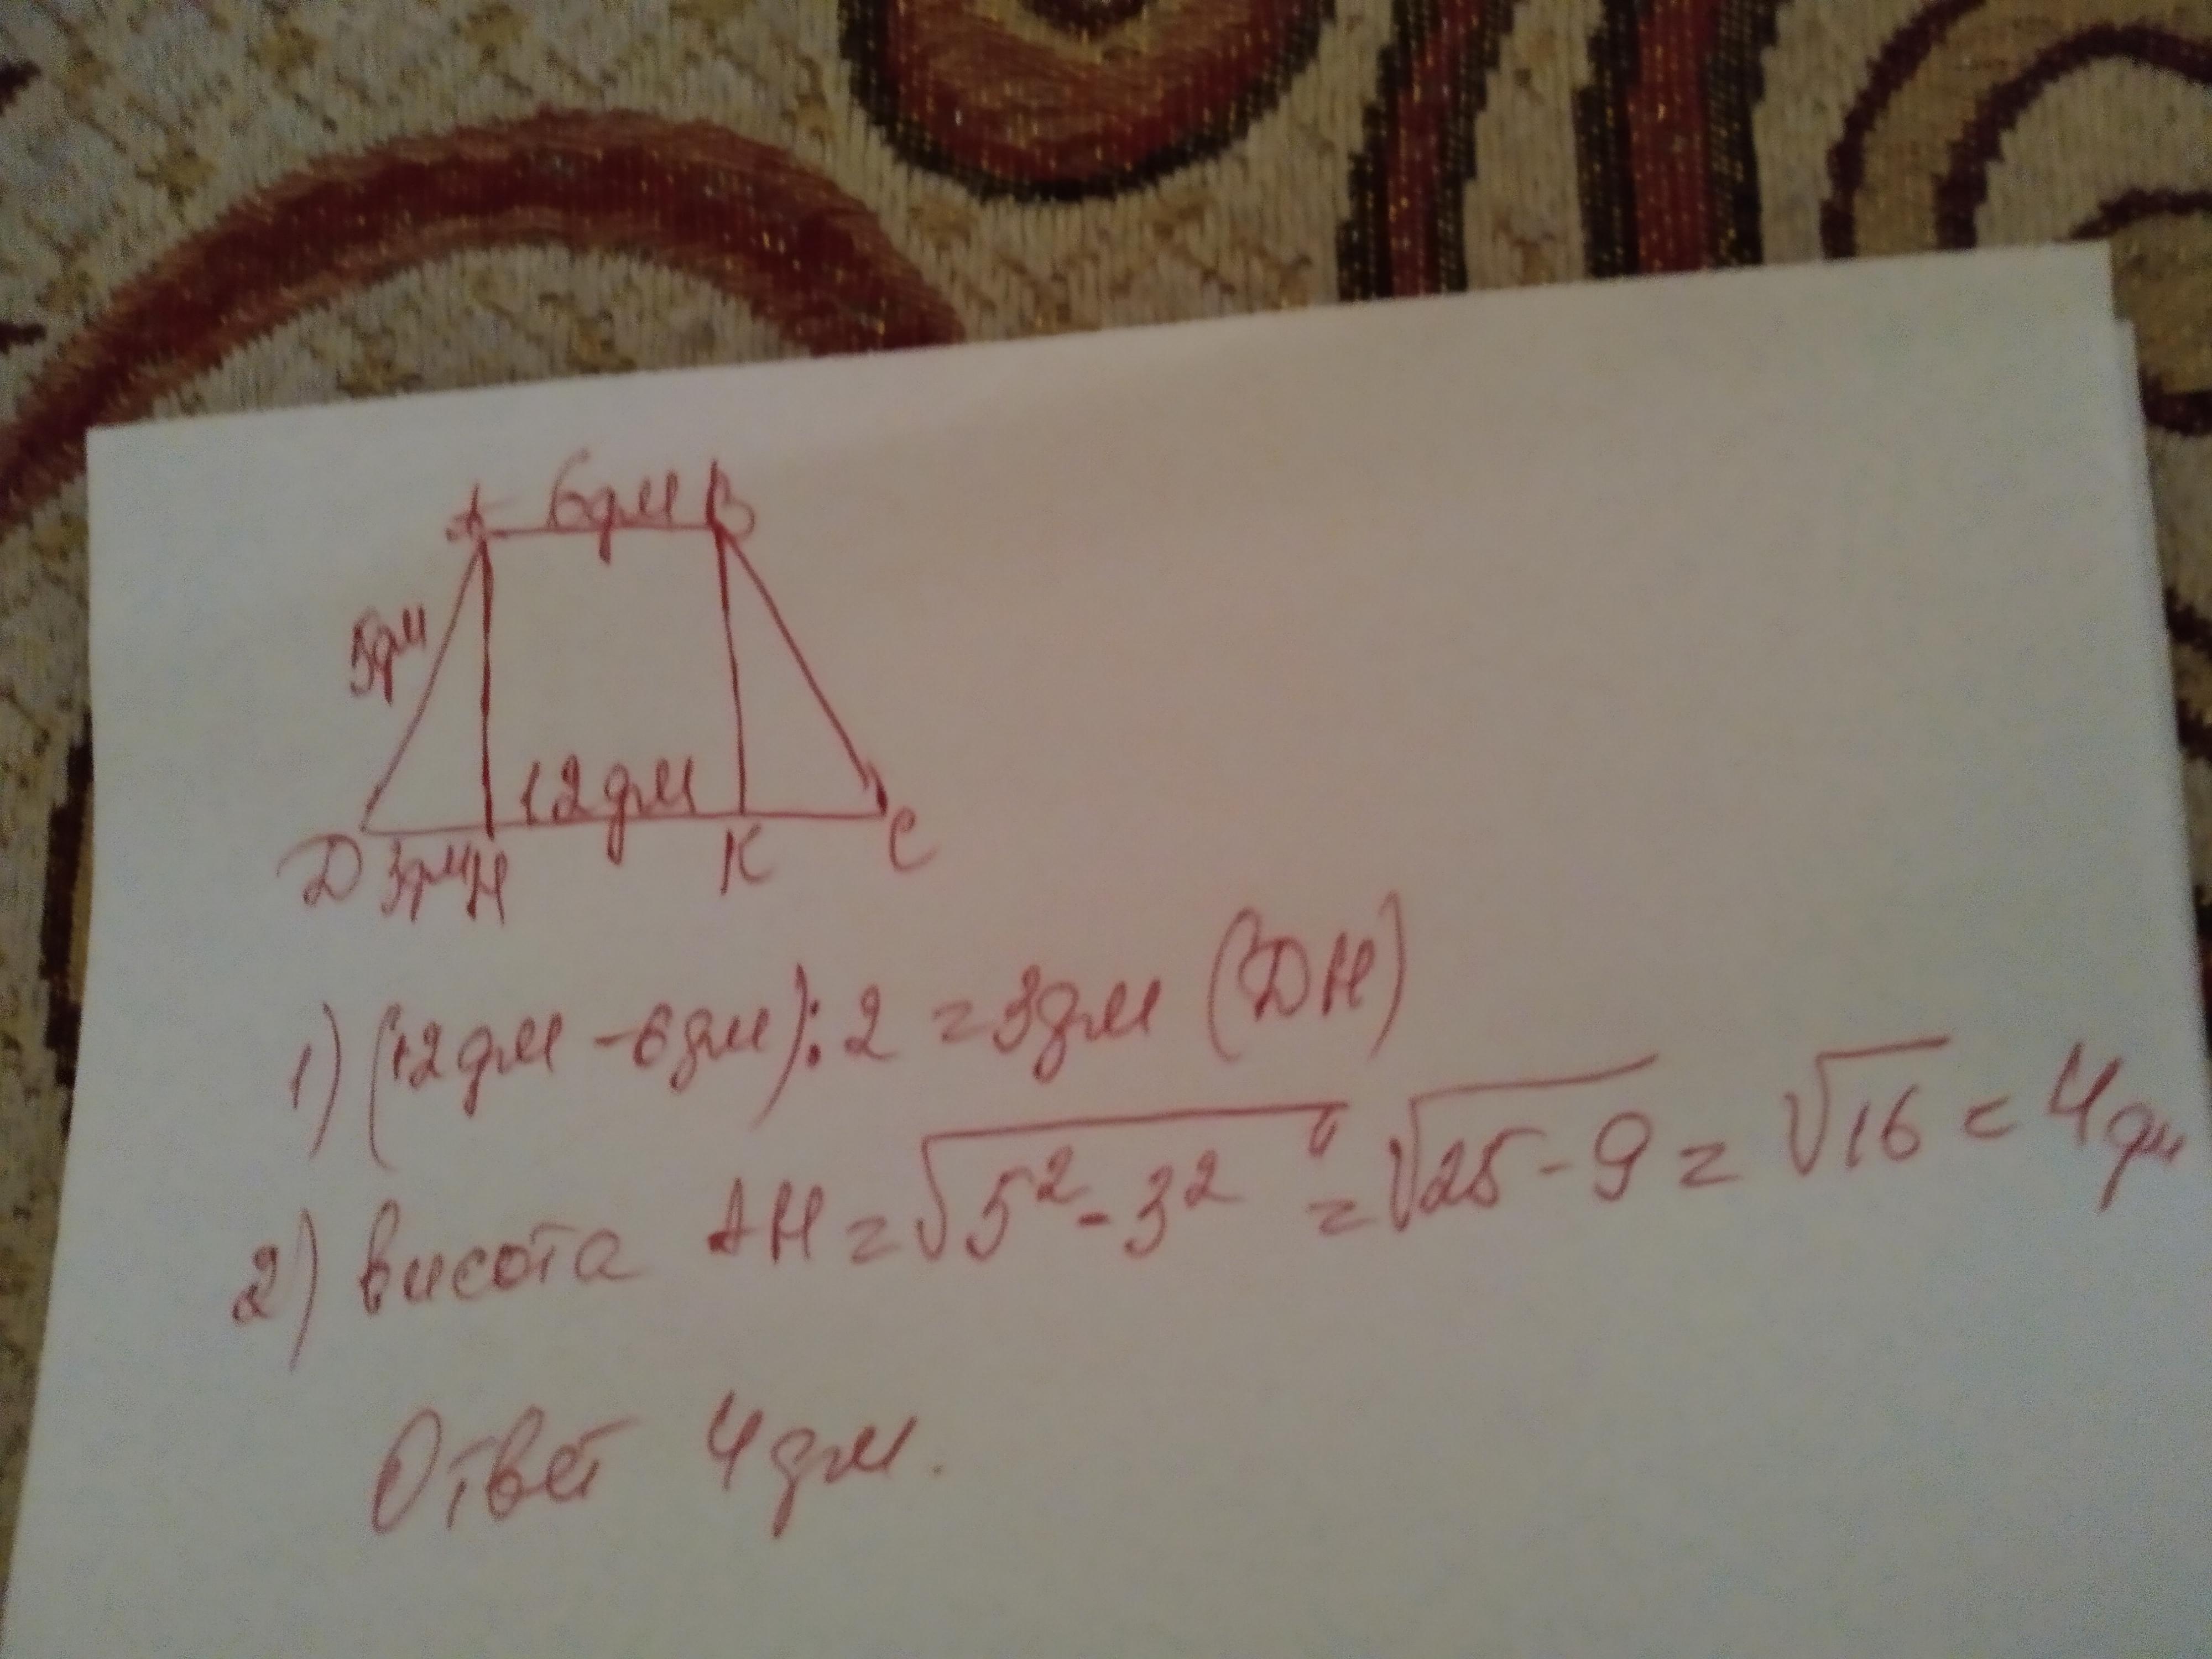 А 6дм В
5дм
12дм
D 3дм Н К С
1) (12дм - 6дм) : 2 = 3дм (DН)
2) висота АН = √5² - 3² = √25 - 9 = √16 = 4дм
Ответ 4дм.